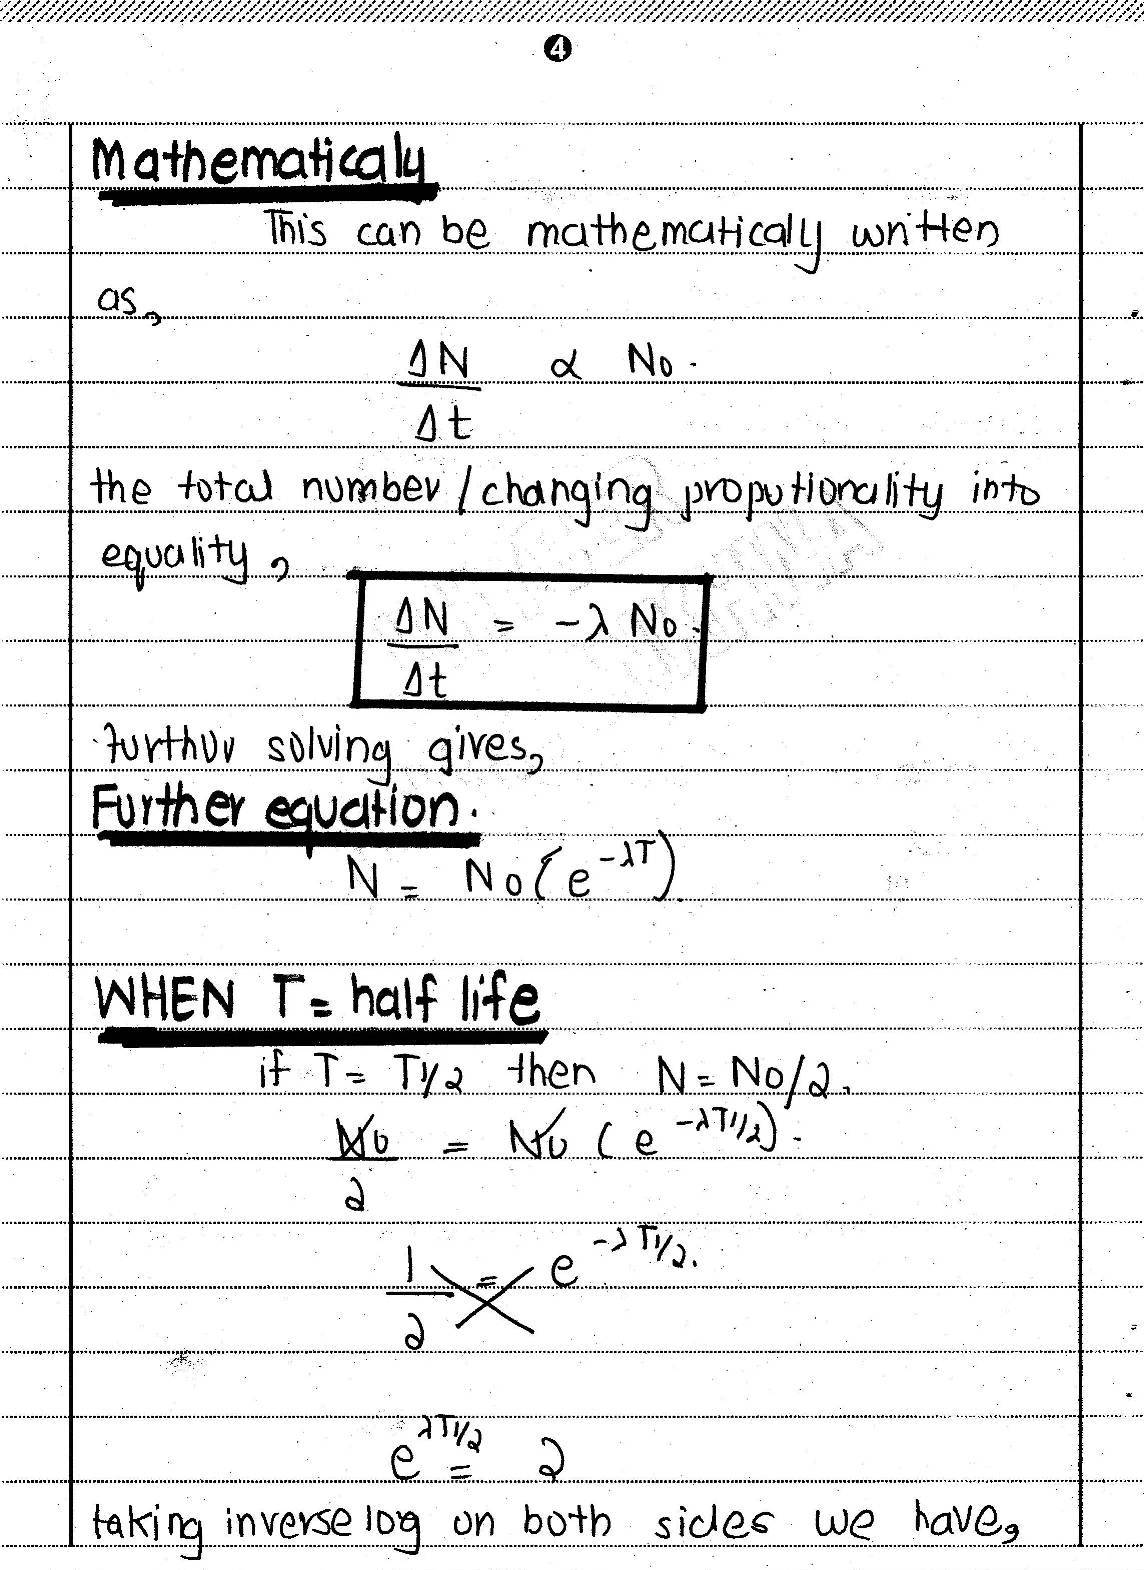 4
Mathematicaly
This can be mathematically written
as,
ΔN ∝ No.
Δt
the total number/changing proputionality into
equality,
ΔN = -λ No.
Δt
furthur solving gives,
Further equation.
N = No(e^-λT).
WHEN T = half life
if T = T1/2 then N = No/2.
No = No (e^-λT1/2).
2
1 = e^-λT1/2.
2
e^λT1/2 = 2
taking inverse log on both sides we have,